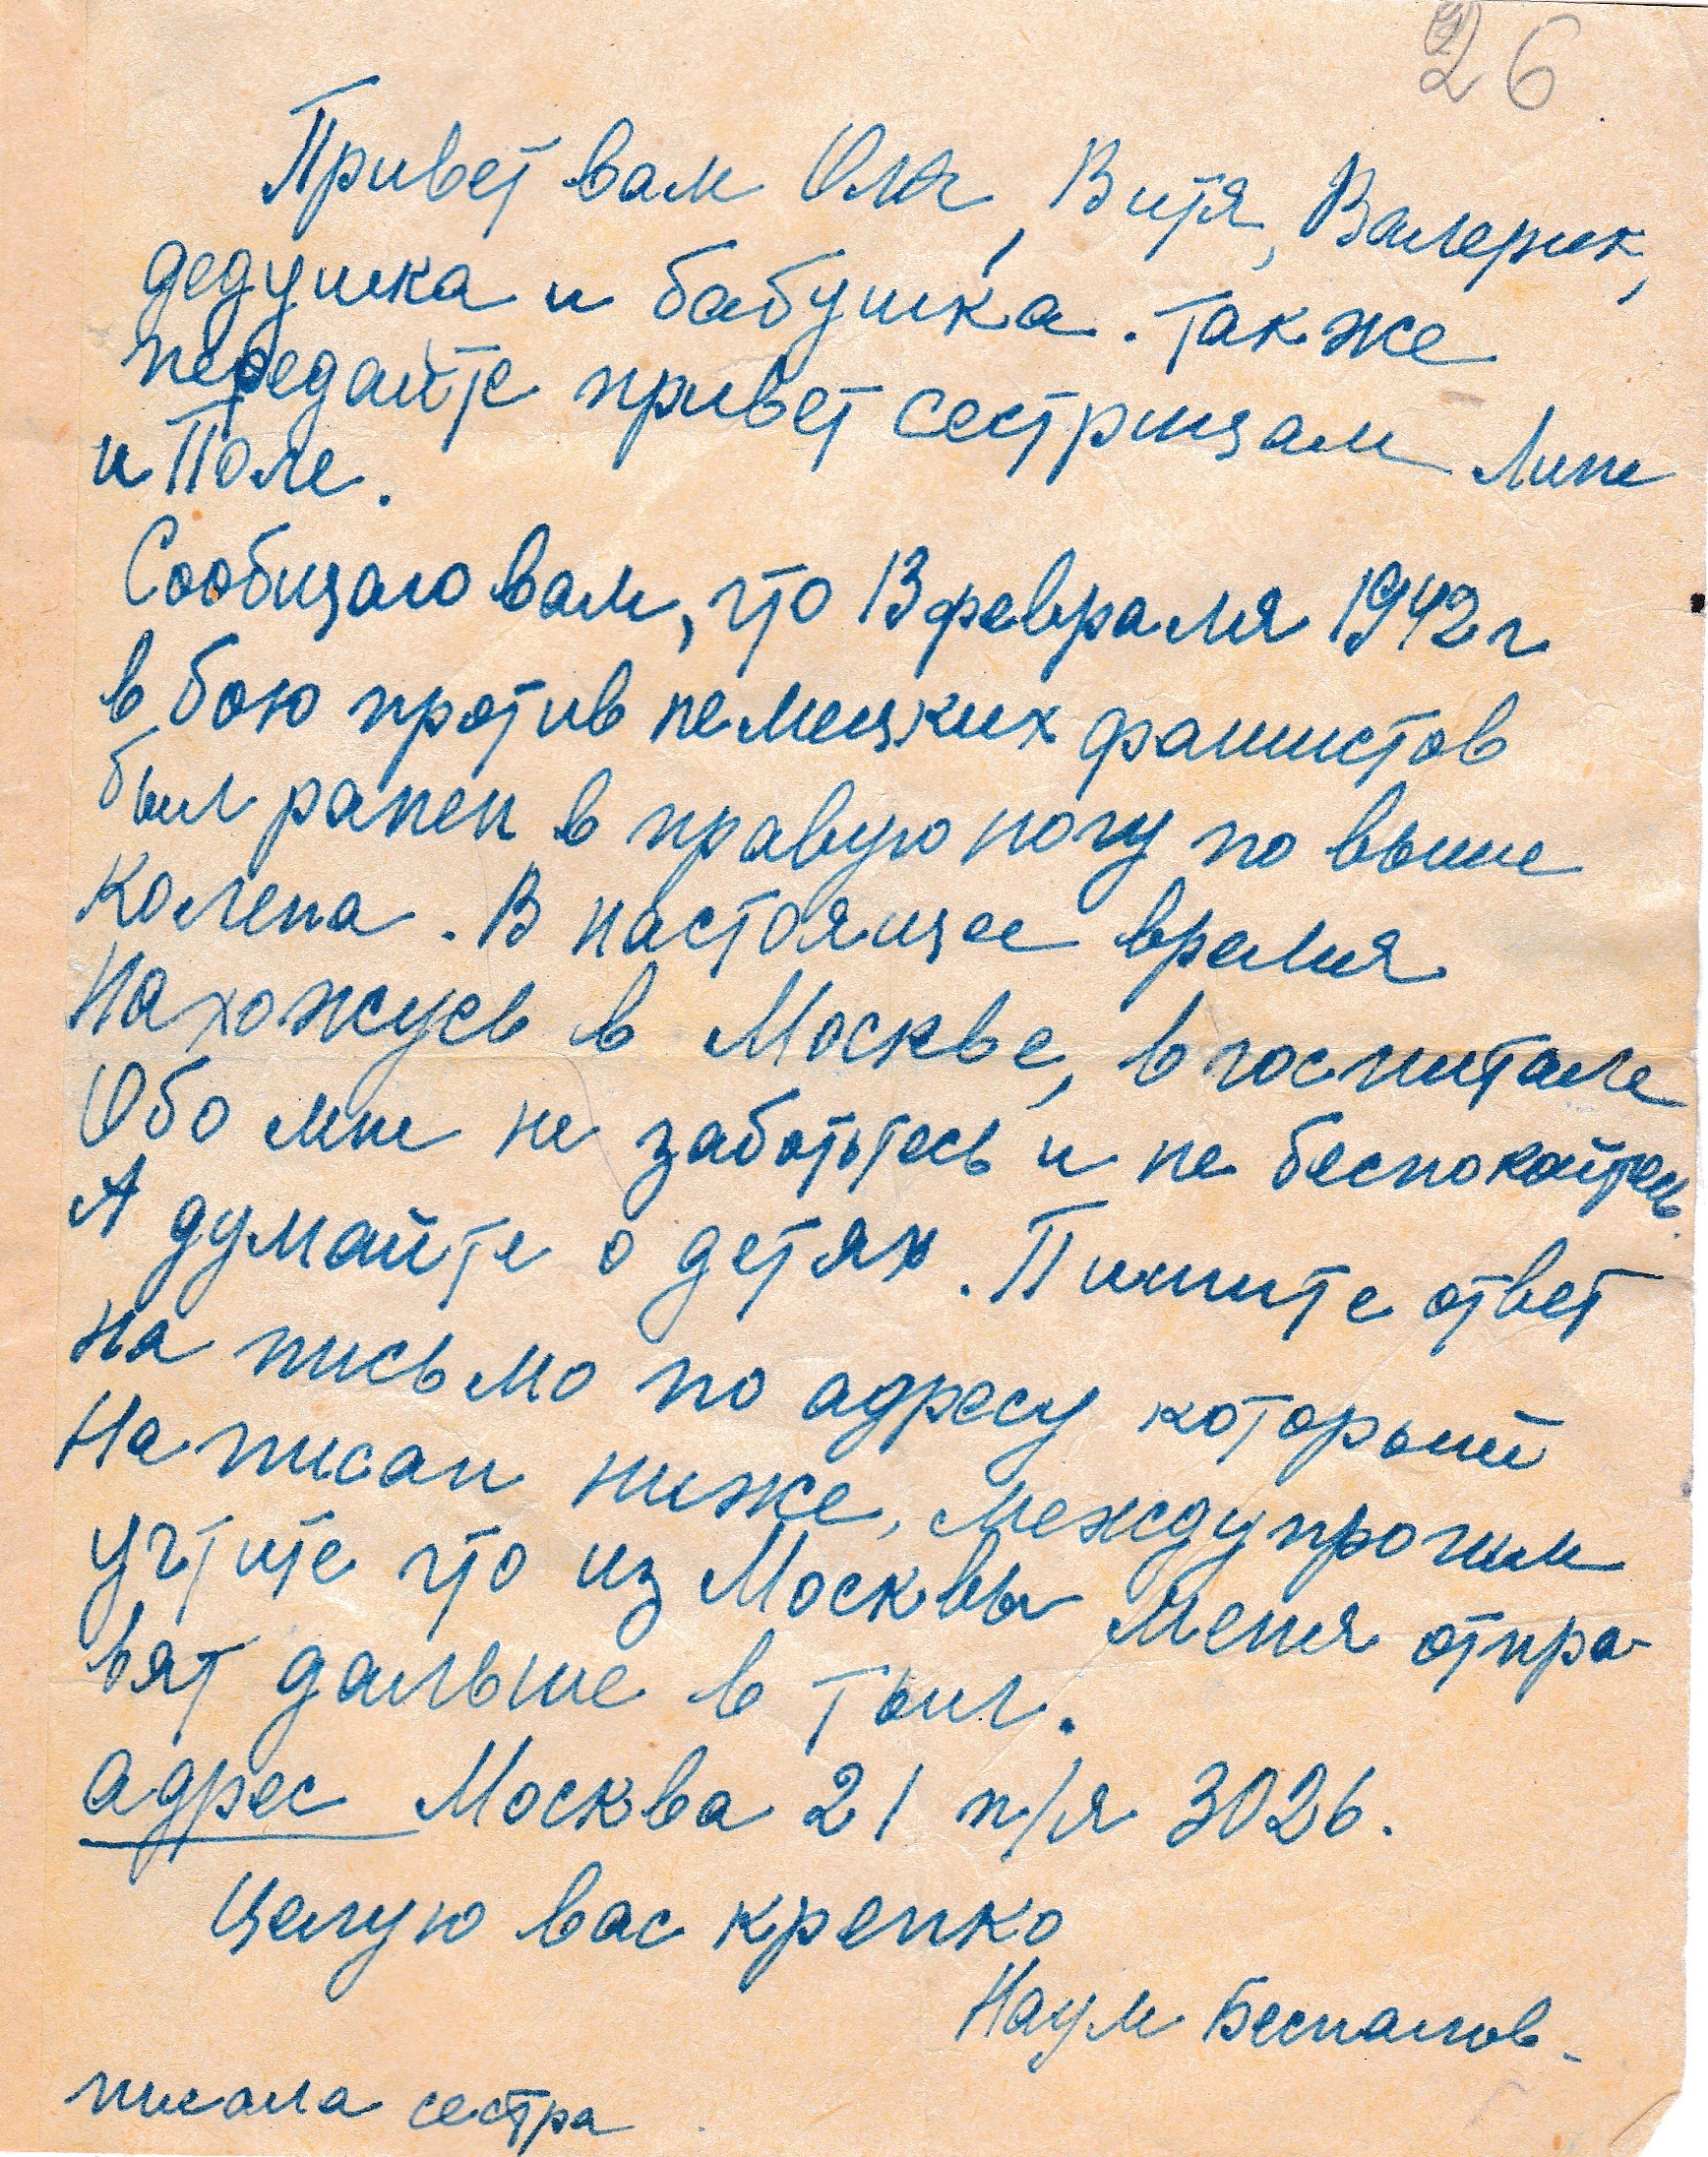 26
Привет вам Оля, Витя, Валерик,
дедушка и бабушка. также
передайте привет сестрицам Липе
и Поле.
Сообщаю вам, что 13 февраля 1942 г
в бою против немецких фашистов
был ранен в правую ногу по выше
колена. В настоящее время
Нахожусь в Москве, в госпитале
Обо мне не заботьтесь и не беспокойтесь.
А думайте о детях. Пишите ответ
на письмо по адресу который
Написан ниже, между прочим
учтите что из Москвы меня отпра-
вят дальше в тыл.
адрес Москва 21 п/я 3026.
Целую вас крепко
Наум Беспалов.
писала сестра